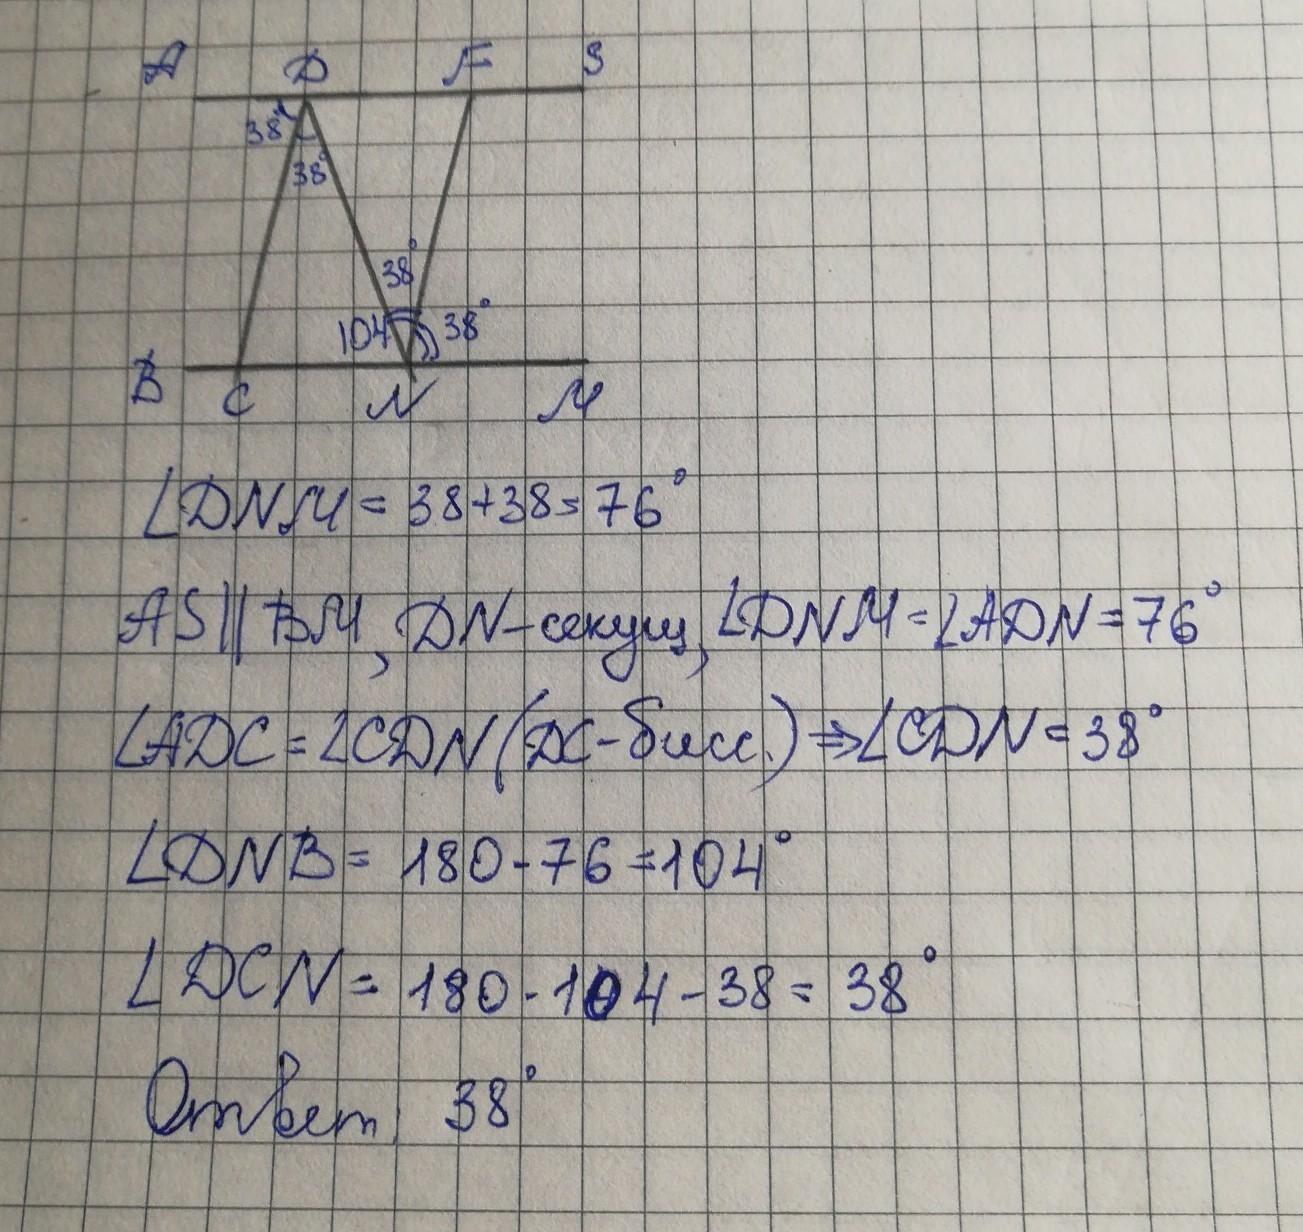 A D F S
38°
38°
38°
104 38°
B C N M
∠DNM = 38+38=76°
AS || BM, DN-секущ, ∠DNM=∠ADN=76°
∠ADC=∠CDN(DC-бисс.)⇒∠CDN=38°
∠DNB= 180-76=104°
∠DCN= 180-104-38= 38°
Ответ, 38°